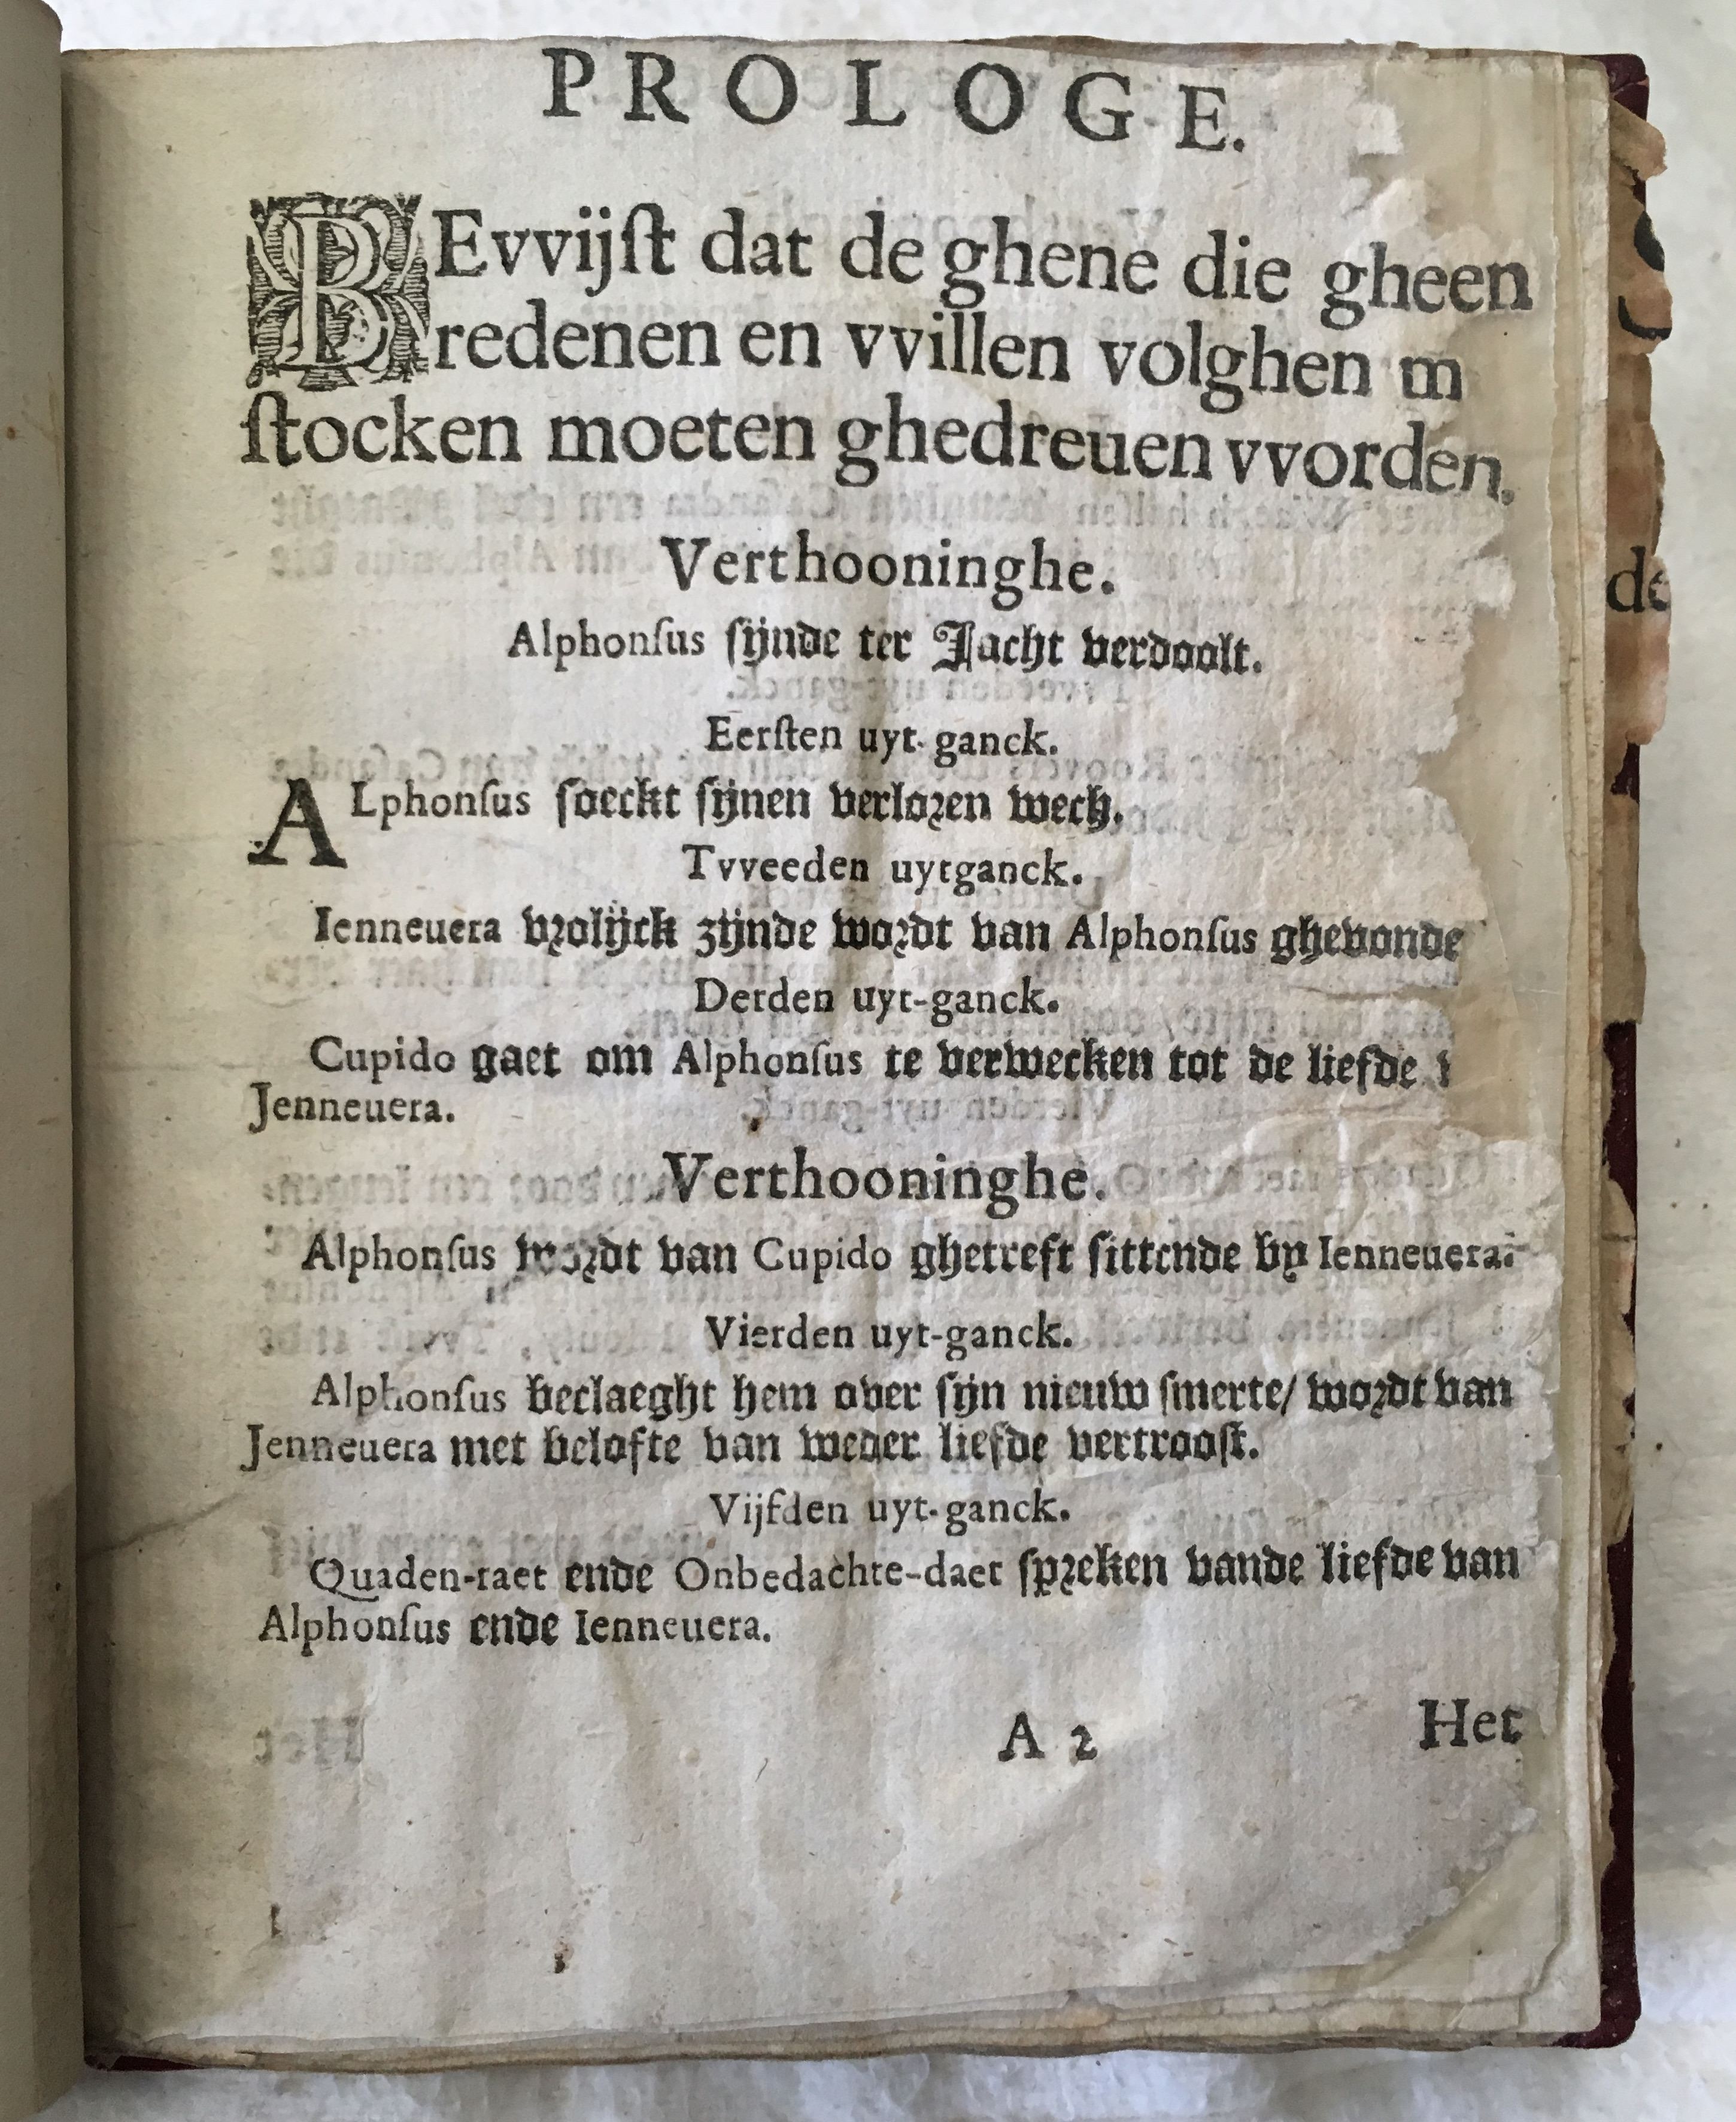 PROLOGE.
BEvvijſt dat de ghene die gheen
redenen en vvillen volghen m
ſtocken moeten ghedreuen vvorden.
Verthooninghe.
Alphonſus ſijnde ter Jacht verdoolt.
Eerſten uyt-ganck.
ALphonſus ſoeckt ſijnen verlozen wech.
Tvveeden uytganck.
Ienneuera vrolijck zijnde wordt van Alphonſus ghevonde
Derden uyt-ganck.
Cupido gaet om Alphonſus te verwecken tot de liefde
Jenneuera.
Verthooninghe.
Alphonſus wordt van Cupido ghetreft ſittende by Ienneuera.
Vierden uyt-ganck.
Alphonſus beclaeght hem over ſijn nieuw ſmerte/ wordt van
Jenneuera met belofte van weder liefde vertrooſt.
Vijfden uyt-ganck.
Quaden-raet ende Onbedachte-daet ſpreken vande liefde van
Alphonſus ende Ienneuera.
A 2 Het
de